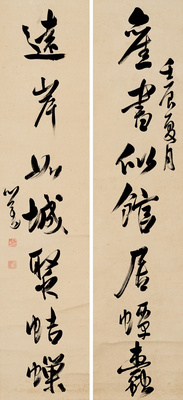 壬辰夏月
產書似館居蟫蠹
遠岸如城聚蛣蟬
心畬